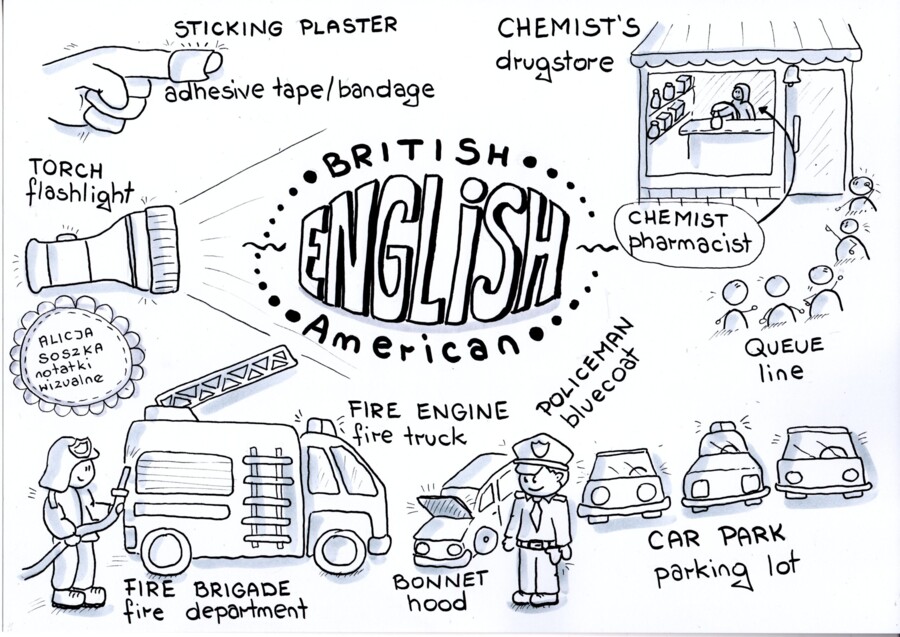 STICKING PLASTER
adhesive tape/bandage
CHEMIST'S
drugstore
TORCH
flashlight
BRITISH
ENGLiSH
American
CHEMIST
pharmacist
ALICJA
SOSZKA
notatki
wizualne
QUEUE
line
POLICEMAN
bluecoat
FIRE ENGINE
fire truck
CAR PARK
parking lot
BONNET
hood
FIRE BRIGADE
fire department